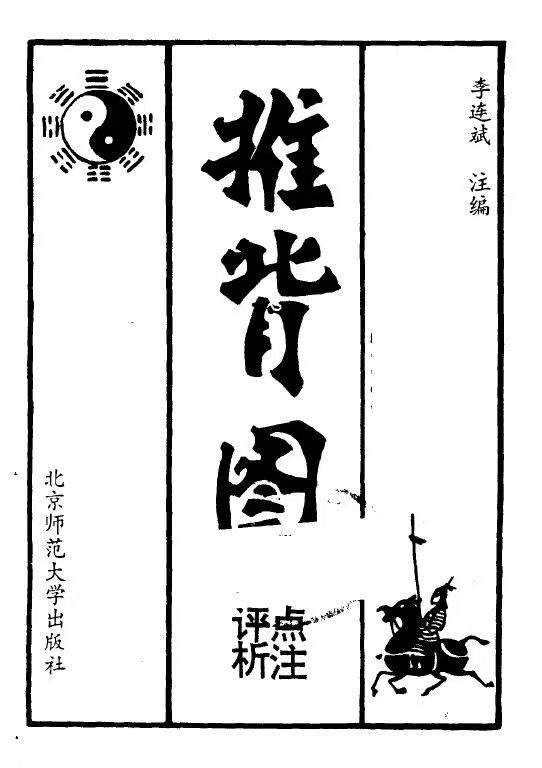 李连斌 注编
推背图
点注
评析
北京师范大学出版社